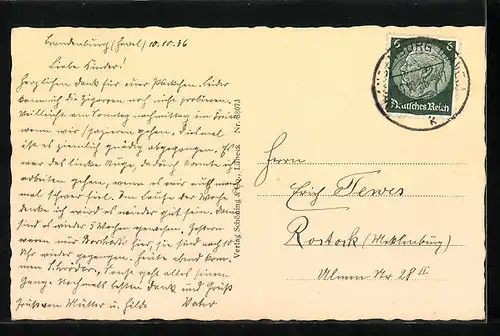 Brandenburg (Havel) 10.10.36
Liebe Kinder!
Herzlichen Dank für euer Päckchen. Leider
kann ich die Zigarren noch nicht probieren.
Vielleicht am Sonntag nachmittag im Freien
wenn wir spazieren gehen. Diesmal
ist es ziemlich gnädig abgegangen. Es
war das linke Auge, dadurch konnte ich
arbeiten gehen, wenn es mir auch manch-
mal schwer fiel. Im Laufe der Woche
denke ich wird es wieder gut sein, dann
sind es wieder 5 Wochen gewesen. Gestern
waren nur hier, sie sind nach
Uhr wieder gegangen. Heute abend kom-
men Schröders, sonst geht alles seinen
Gang. Nochmals besten Dank und Gruß
Grüße von Mutter u. Hilde Vater
Verlag Schöning & Co., Lübeck Nr. 68073
6 6
Deutsches Reich
Herrn
Erich Tewes
Rostock (Mecklenburg)
Ulmen Str 28 II.